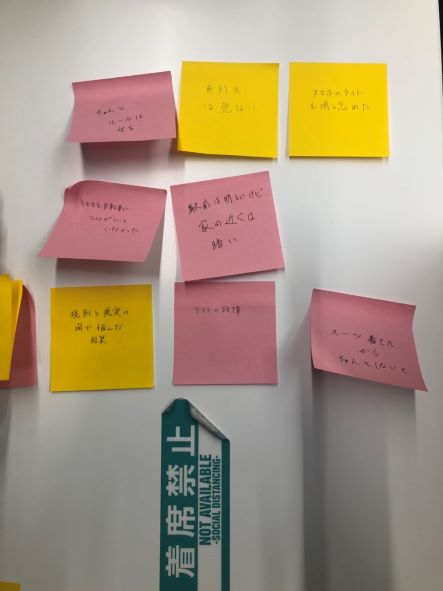 ちゃんと
ルールは
守る
無灯火
は危ない
スマホのライト
を消し忘れた
ライトがついて
いなかった
駅前は明るいけど
家の近くは
暗い
規則と現実の
間で悩んだ
結果
ライトの故障
スーツ着てた
から
ちゃんとしないと
着席禁止
NOT AVAILABLE
-SOCIAL DISTANCING-